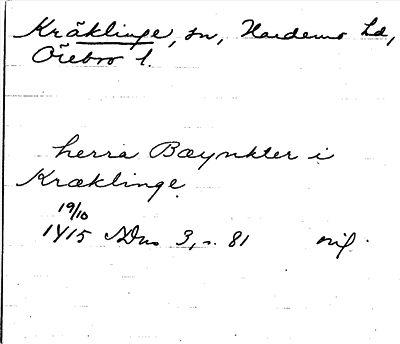 Kräklinge, sn, Hardemo hd,
Örebro l.
herra Bæynkter i
Kræklinge
19/10
1415 SDns 3, s. 81 orig.